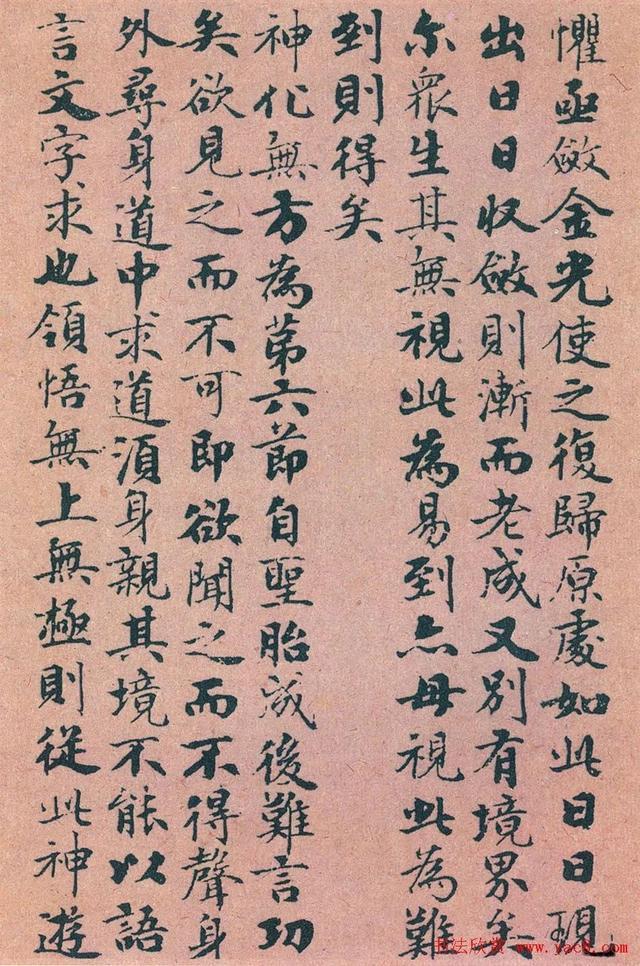 懼亟斂金光使之復歸原處如此日日現
出日日収斂則漸而老成又別有境界矣
尓衆生其無視此為易到亦毋視此為難
到則得矣
神化無方為第六節自聖胎成後難言功
矣欲見之而不可即欲聞之而不得聲身
外尋身道中求道須身親其境不能以語
言文字求也領悟無上無極則從此神遊
书法欣赏 www.yac8.com